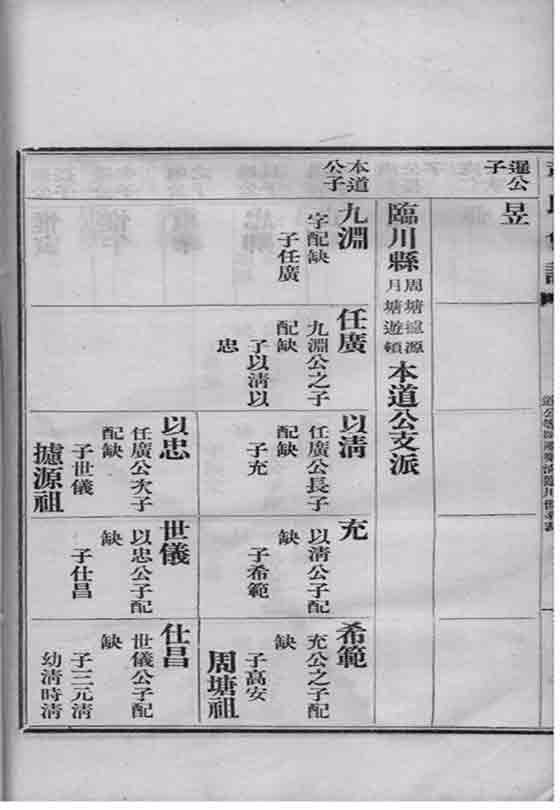 暹公
子
昱
臨川縣
周塘攄源
月塘遊頓
本道公支派
本道
公子
九淵
字配缺
子任廣
任廣
九淵公之子
配缺
子以清以
忠
以清
任廣公長子
配缺
子充
以忠
任廣公次子
配缺
子世儀
攄源祖
充
以清公子配
缺
子希範
世儀
以忠公子配
缺
子仕昌
希範
充公之子配
缺
子高安
周塘祖
仕昌
世儀公子配
缺
子三元清
幼清時清